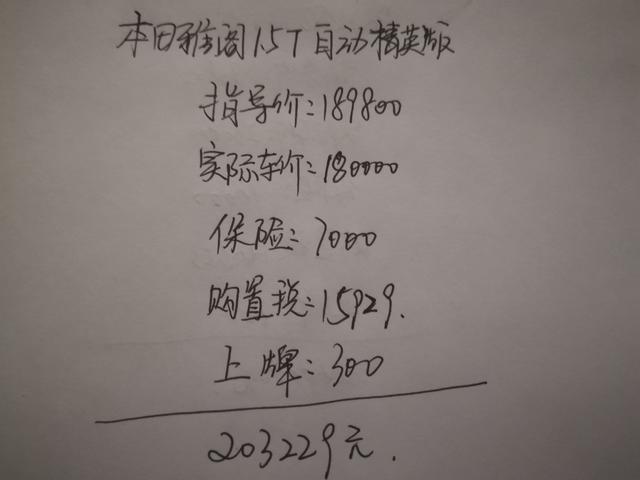 本田雅阁1.5T自动精英版
指导价:189800
实际车价:180000
保险:7000
购置税:15929.
上牌:300
203229元.